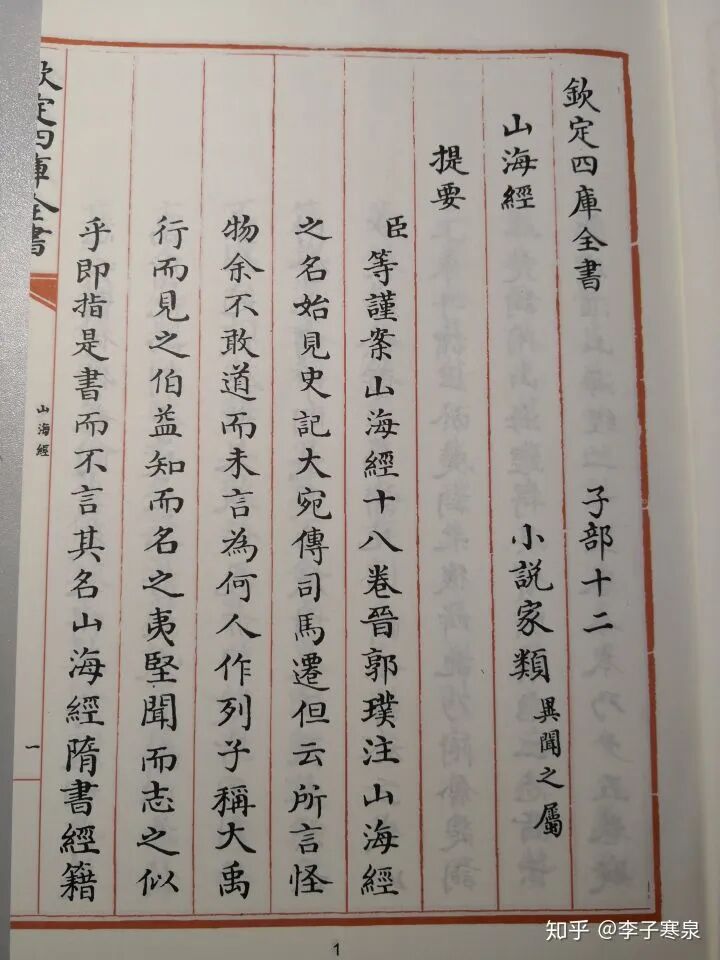 欽定四庫全書 子部十二
山海經 小說家類異聞之屬
提要
臣等謹案山海經十八卷晉郭璞注山海經
之名始見史記大宛傳司馬遷但云所言怪
物余不敢道而未言為何人作列子稱大禹
行而見之伯益知而名之夷堅聞而志之似
乎即指是書而不言其名山海經隋書經籍
欽定四庫全書
山海經
一
1
知乎 @李子寒泉